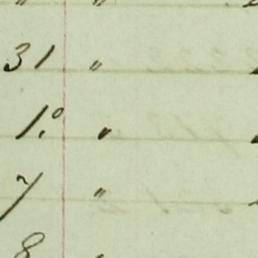 " "
31 "
1.º "
7 "
8 "